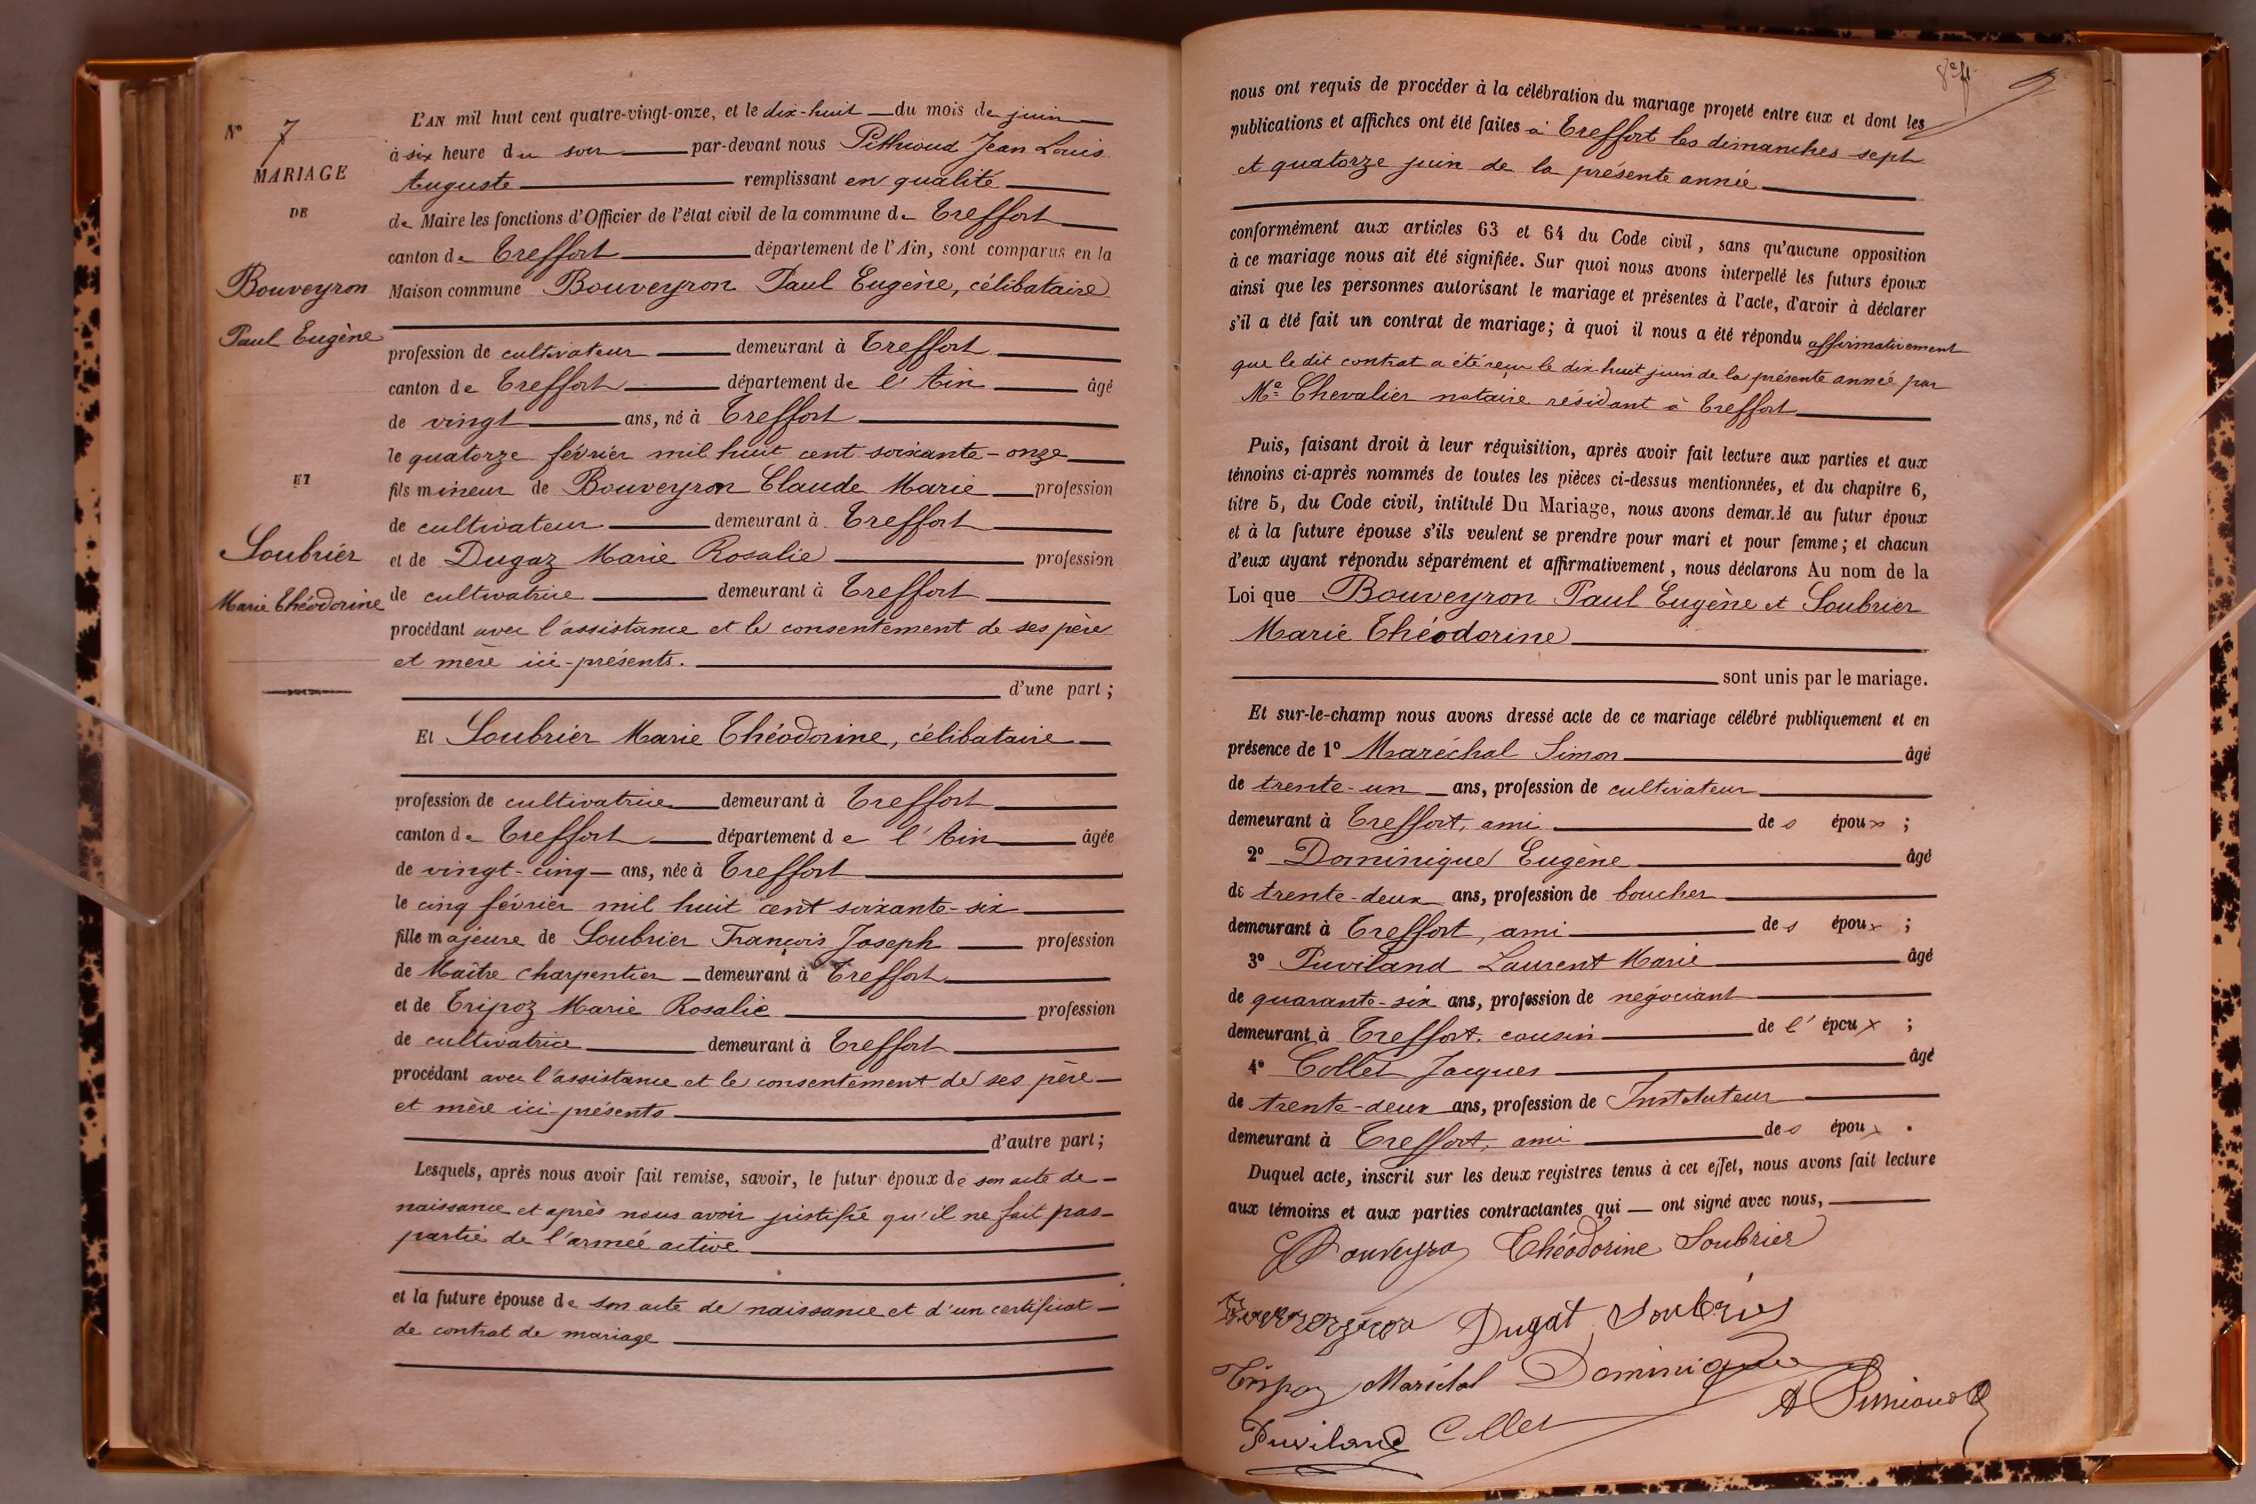 N° 7
MARIAGE
DE
Bouveyron
Paul Eugène
ET
Soubrier
Marie Théodorine
L'AN mil huit cent quatre-vingt-onze, et le dix-huit du mois de juin
à six heure du soir par-devant nous Pithioud Jean Louis
Auguste remplissant en qualité
de Maire les fonctions d'Officier de l'état civil de la commune de Treffort
canton de Treffort département de l'Ain, sont comparus en la
Maison commune Bouveyron Paul Eugène, célibataire
profession de cultivateur demeurant à Treffort
canton de Treffort département de l'Ain âgé
de vingt ans, né à Treffort
le quatorze février mil huit cent soixante-onze
fils mineur de Bouveyron Claude Marie profession
de cultivateur demeurant à Treffort
et de Dugaz Marie Rosalie profession
de cultivatrice demeurant à Treffort
procédant avec l'assistance et le consentement de ses père
et mère ici-présents.
d'une part ;
Et Soubrier Marie Théodorine, célibataire
profession de cultivatrice demeurant à Treffort
canton de Treffort département de l'Ain âgée
de vingt-cinq ans, née à Treffort
le cinq février mil huit cent soixante-six
fille majeure de Soubrier François Joseph profession
de Maître charpentier demeurant à Treffort
et de Tripoz Marie Rosalie profession
de cultivatrice demeurant à Treffort
procédant avec l'assistance et le consentement de ses père
et mère ici-présents
d'autre part ;
Lesquels, après nous avoir fait remise, savoir, le futur époux de son acte de
naissance et après nous avoir justifié qu'il ne fait pas
partie de l'armée active
et la future épouse de son acte de naissance et d'un certificat
de contrat de mariage
nous ont requis de procéder à la célébration du mariage projeté entre eux et dont les
publications et affiches ont été faites à Treffort les dimanches sept
et quatorze juin de la présente année
conformément aux articles 63 et 64 du Code civil, sans qu'aucune opposition
à ce mariage nous ait été signifiée. Sur quoi nous avons interpellé les futurs époux
ainsi que les personnes autorisant le mariage et présentes à l'acte, d'avoir à déclarer
s'il a été fait un contrat de mariage; à quoi il nous a été répondu affirmativement
que le dit contrat a été reçu le dix huit juin de la présente année par
Me Chevalier notaire résidant à Treffort
Puis, faisant droit à leur réquisition, après avoir fait lecture aux parties et aux
témoins ci-après nommés de toutes les pièces ci-dessus mentionnées, et du chapitre 6,
titre 5, du Code civil, intitulé Du Mariage, nous avons demandé au futur époux
et à la future épouse s'ils veulent se prendre pour mari et pour femme; et chacun
d'eux ayant répondu séparément et affirmativement, nous déclarons Au nom de la
Loi que Bouveyron Paul Eugène et Soubrier
Marie Théodorine
sont unis par le mariage.
Et sur-le-champ nous avons dressé acte de ce mariage célébré publiquement et en
présence de 1° Maréchal Simon âgé
de trente-un ans, profession de cultivateur
demeurant à Treffort, ami des époux ;
2° Dominique Eugène âgé
de trente-deux ans, profession de boucher
demeurant à Treffort, ami des époux ;
3° Puviland Laurent Marie âgé
de quarante-six ans, profession de négociant
demeurant à Treffort, cousin de l'époux ;
4° Collet Jacques âgé
de trente-deux ans, profession de Instituteur
demeurant à Treffort, ami des époux .
Duquel acte, inscrit sur les deux registres tenus à cet effet, nous avons fait lecture
aux témoins et aux parties contractantes qui ont signé avec nous,
Théodorine Soubrier
Dugat Soubrier
Tripoz Maréchal Dominique
Puviland Collet